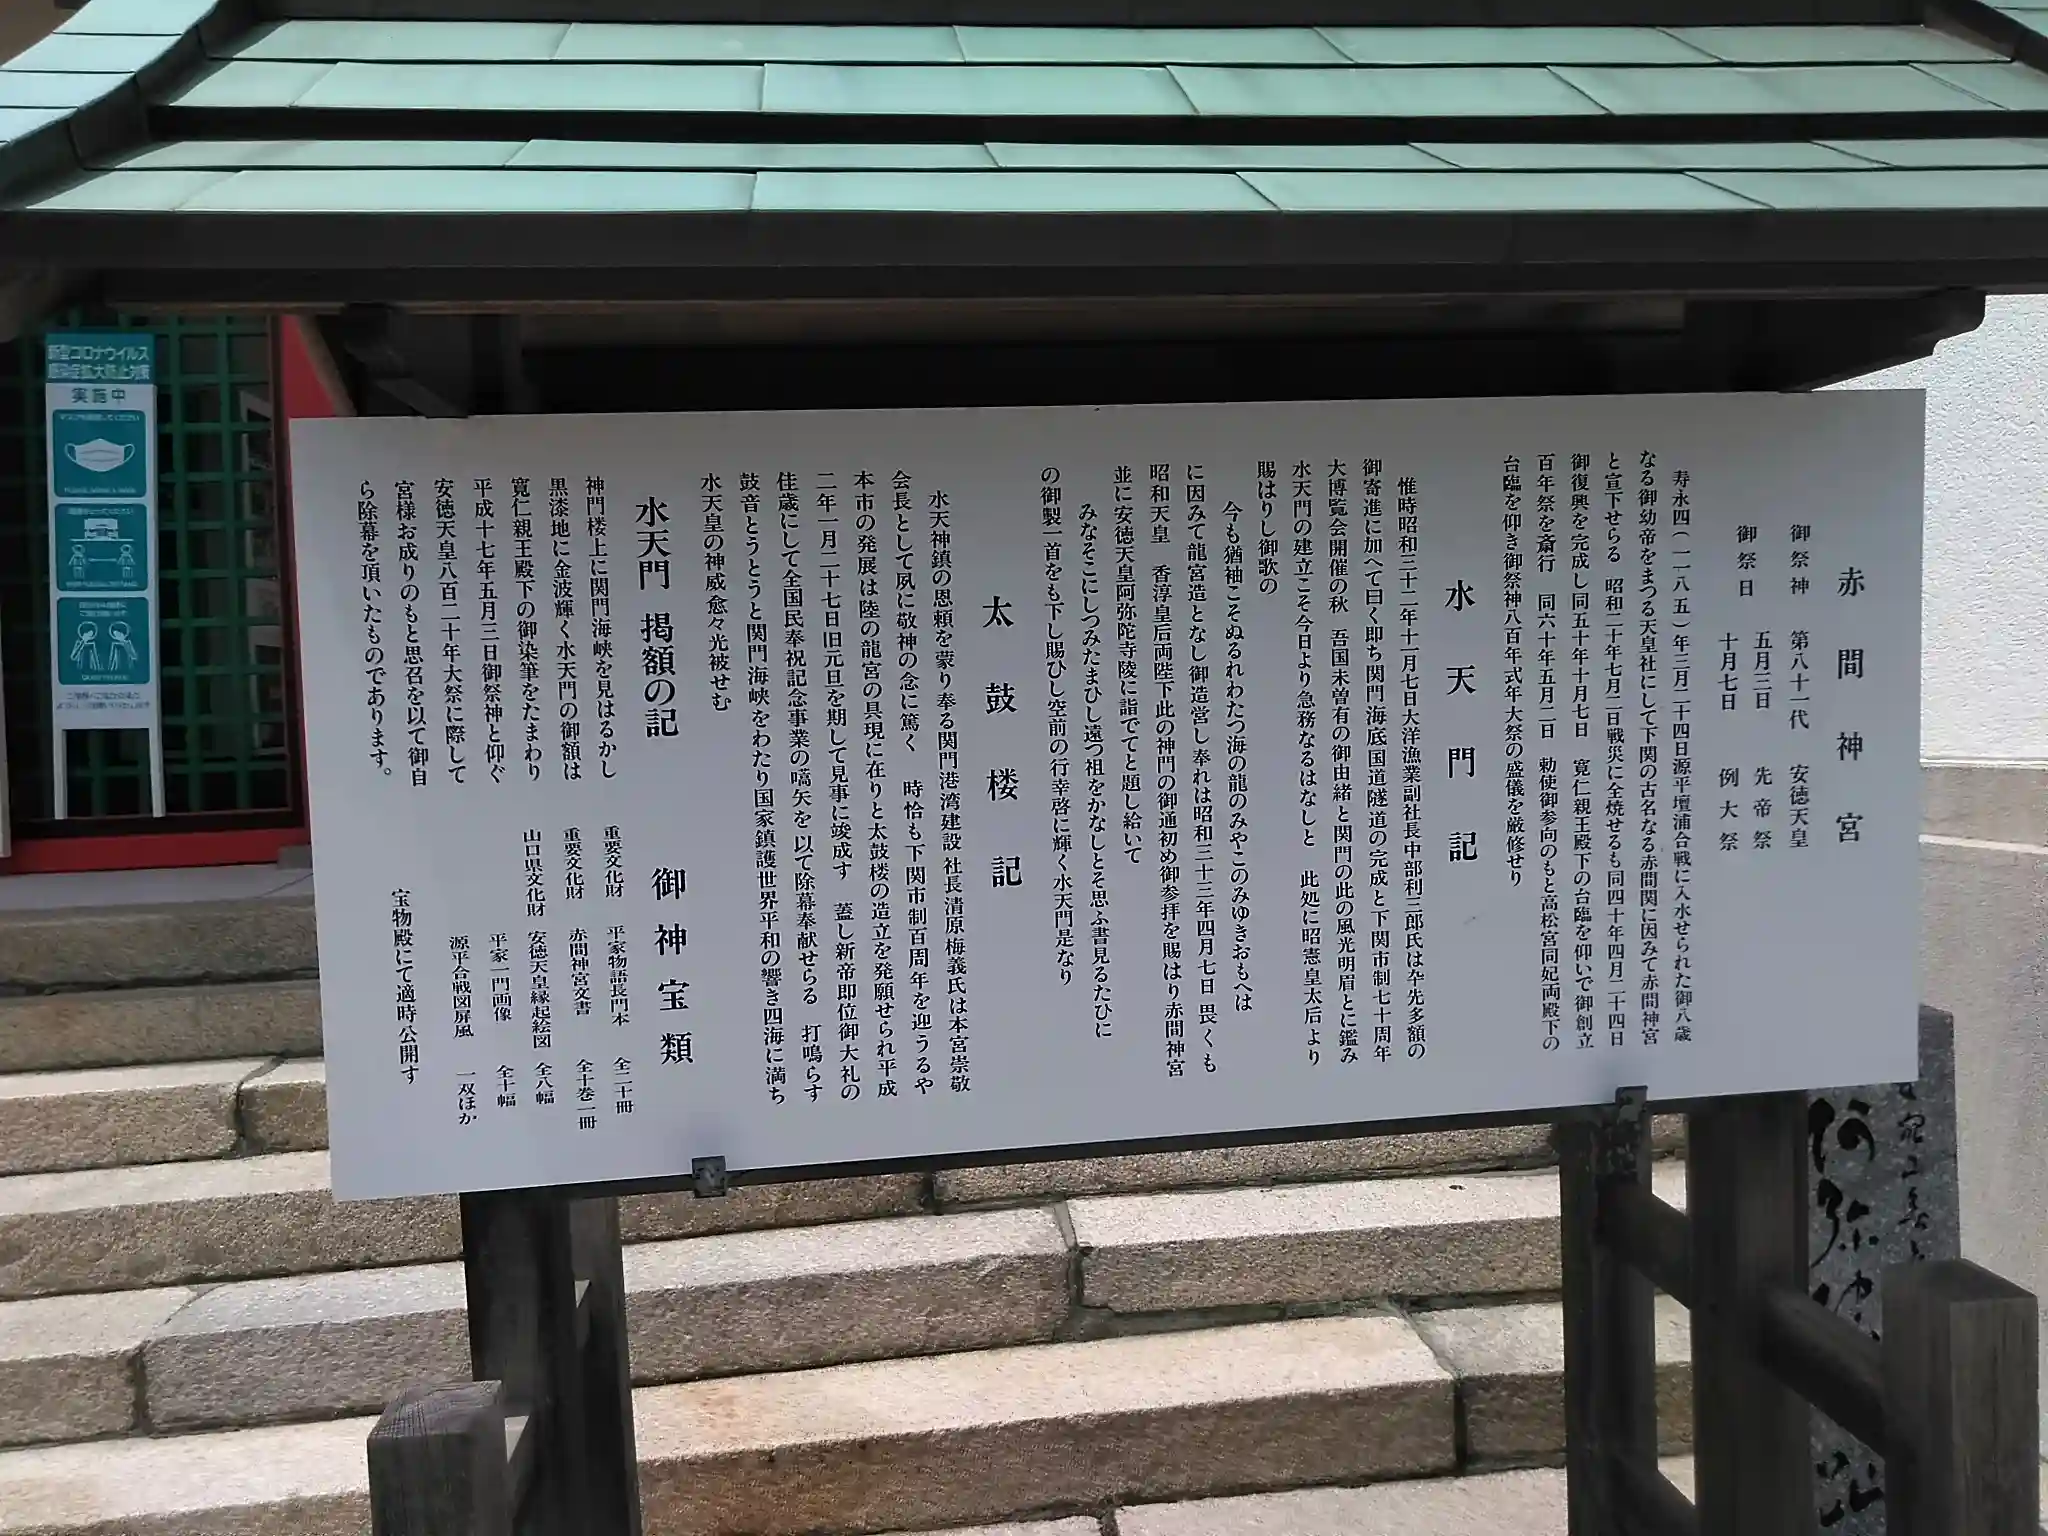 赤間神宮
御祭神　第八十一代　安徳天皇
御祭日　五月三日　先帝祭
十月七日　例大祭
寿永四(一一八五)年三月二十四日源平壇浦合戦に入水せられた御八歳
なる御幼帝をまつる天皇社にして下関の古名なる赤間関に因みて赤間神宮
と宣下せらる　昭和二十年七月二日戦災に全焼せるも同四十年四月二十四日
御復興を完成し同五十年十月七日　寛仁親王殿下の台臨を仰いで御創立
百年祭を斎行　同六十年五月二日　勅使御参向のもと高松宮同妃両殿下の
台臨を仰き御祭神八百年式年大祭の盛儀を厳修せり
水天門記
惟時昭和三十二年十一月七日大洋漁業副社長中部利三郎氏は卒先多額の
御寄進に加へて曰く即ち関門海底国道隧道の完成と下関市制七十周年
大博覧会開催の秋　吾国未曽有の御由緒と関門の此の風光明眉とに鑑み
水天門の建立こそ今日より急務なるはなしと　此処に昭憲皇太后より
賜はりし御歌の
今も猶袖こそぬるれわたつ海の龍のみやこのみゆきおもへは
に因みて龍宮造となし御造営し奉れは昭和三十三年四月七日畏くも
昭和天皇　香淳皇后両陛下此の神門の御通初め御参拝を賜はり赤間神宮
並に安徳天皇阿弥陀寺陵に詣でてと題し給いて
みなそこにしつみたまひし遠つ祖をかなしとそ思ふ書見るたひに
の御製一首をも下し賜ひし空前の行幸啓に輝く水天門是なり
太鼓楼記
水天神鎮の恩頼を蒙り奉る関門港湾建設社長清原梅義氏は本宮崇敬
会長として夙に敬神の念に篤く　時恰も下関市制百周年を迎うるや
本市の発展は陸の龍宮の具現に在りと太鼓楼の造立を発願せられ平成
二年一月二十七日旧元旦を期して見事に竣成す　蓋し新帝即位御大礼の
佳歳にして全国民奉祝記念事業の嚆矢を以て除幕奉献せらる　打鳴らす
鼓音とうとうと関門海峡をわたり国家鎮護世界平和の響き四海に満ち
水天皇の神威愈々光被せむ
水天門　掲額の記
神門楼上に関門海峡を見はるかし
黒漆地に金波輝く水天門の御額は
寛仁親王殿下の御染筆をたまわり
平成十七年五月三日御祭神と仰ぐ
安徳天皇八百二十年大祭に際して
宮様お成りのもと思召を以て御自
ら除幕を頂いたものであります。
御神宝類
重要文化財　平家物語長門本　全二十冊
重要文化財　赤間神宮文書　全十巻一冊
山口県文化財　安徳天皇縁起絵図　全八幅
平家一門画像　全十幅
源平合戦図屏風　一双ほか
宝物殿にて適時公開す
新型コロナウイルス
感染症拡大防止対策
実施中